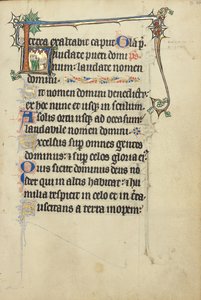 terea exaltabit caput. Gla p.
Laudate pueri domi ps
num: laudate nomen
domini.
Sit nomen domini benedictu
ex hoc nunc et usq; in seculum
A solis ortu usq; ad occasum
laudabile nomen domini.
Excelsus sup omnes gentes
dominus: sup celos gloria ei
Quis sicut dominus deus no
ster qui in altis habitat: hu
milia respicit in celo et in tra
Suscitans a terra inopem: